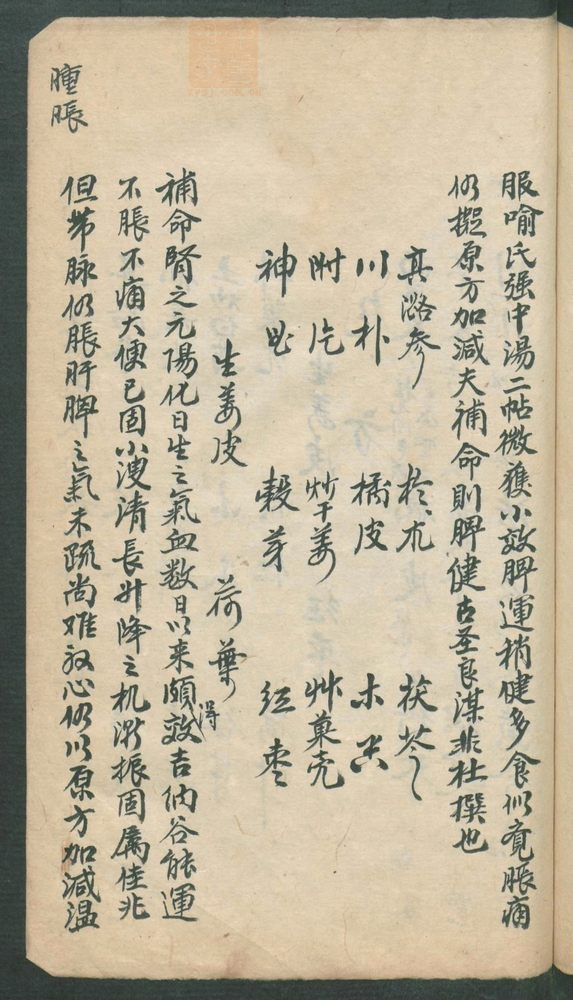 服喻氏强中湯二帖微獲小效脾運稍健多食仍覔脹痛
仍擬原方加減夫補命則脾健古圣良谋非杜撰也
真潞參 於朮 茯苓
川朴 橘皮 木香
附片 炒干姜 艸菓壳
神曲 穀芽 红枣
生姜皮 荷葉
補命腎之元陽化日生之氣血数日以来頗得效吉纳谷能運
不脹不痛大便已固小溲清長升降之机漸振固属佳兆
但带脉仍脹肝脾之氣未疏尚难放心仍以原方加減温
腫脹